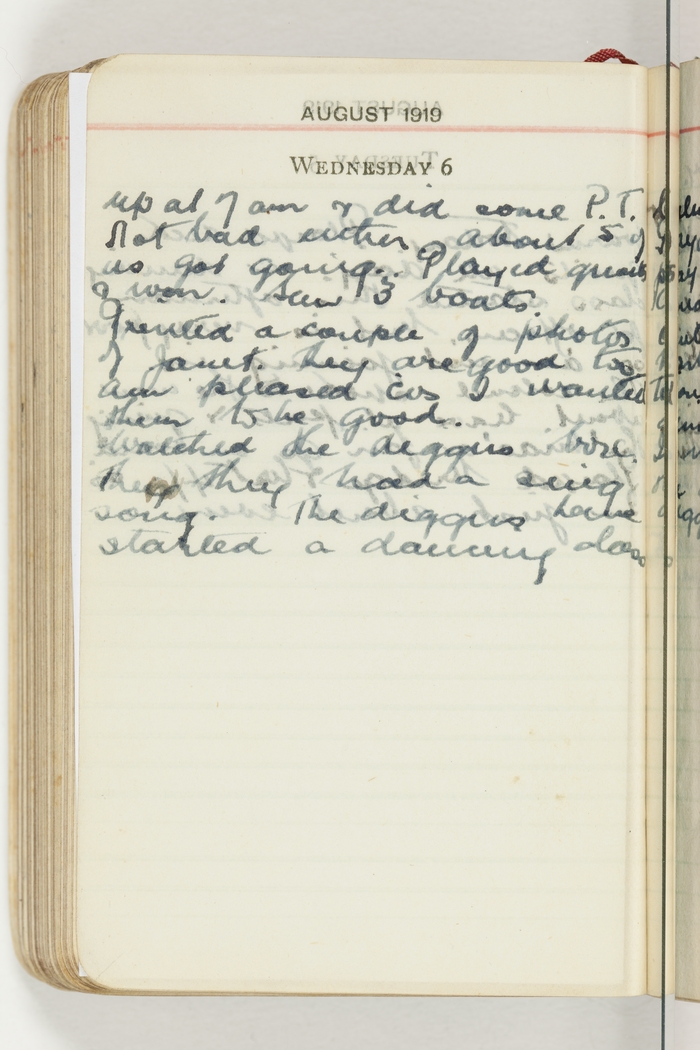 AUGUST 1919
WEDNESDAY 6
up at 7 am & did some P.T.
Not bad either, about 5 of
us got going. Played quoits
& won. Saw 3 boats.
Printed a couple of photos
of Janet. They are good too
am pleased cos I wanted
them to be good.
Watched the diggers box.
they they had a sing
song. The diggers have
started a dancing class